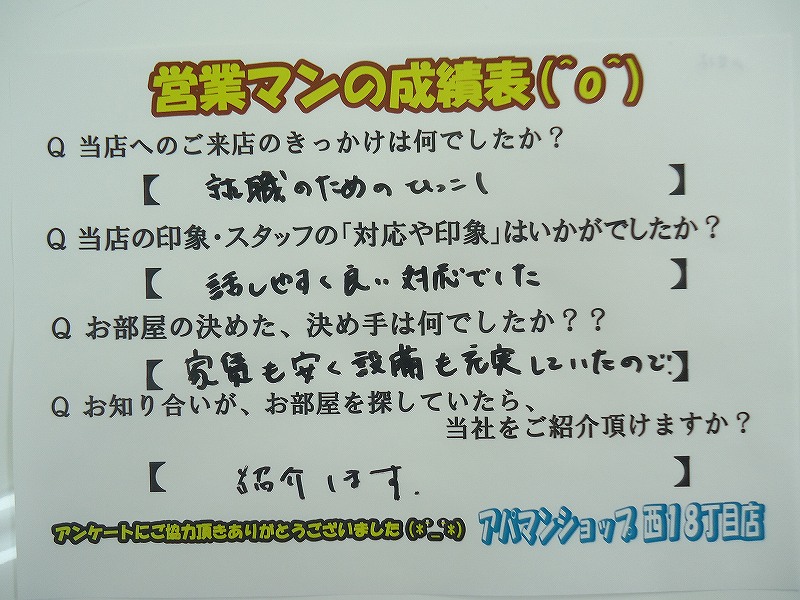 営業マンの成績表(^o^)
Q 当店へのご来店のきっかけは何でしたか？
【 就職のためのひっこし 】
Q 当店の印象・スタッフの「対応や印象」はいかがでしたか？
【 話しやすく良い対応でした 】
Q お部屋の決めた、決め手は何でしたか？？
【 家賃も安く設備も充実していたので 】
Q お知り合いが、お部屋を探していたら、
当社をご紹介頂けますか？
【 紹介します. 】
アンケートにご協力頂きありがとうございました(*^_^*)
アパマンショップ 西18丁目店